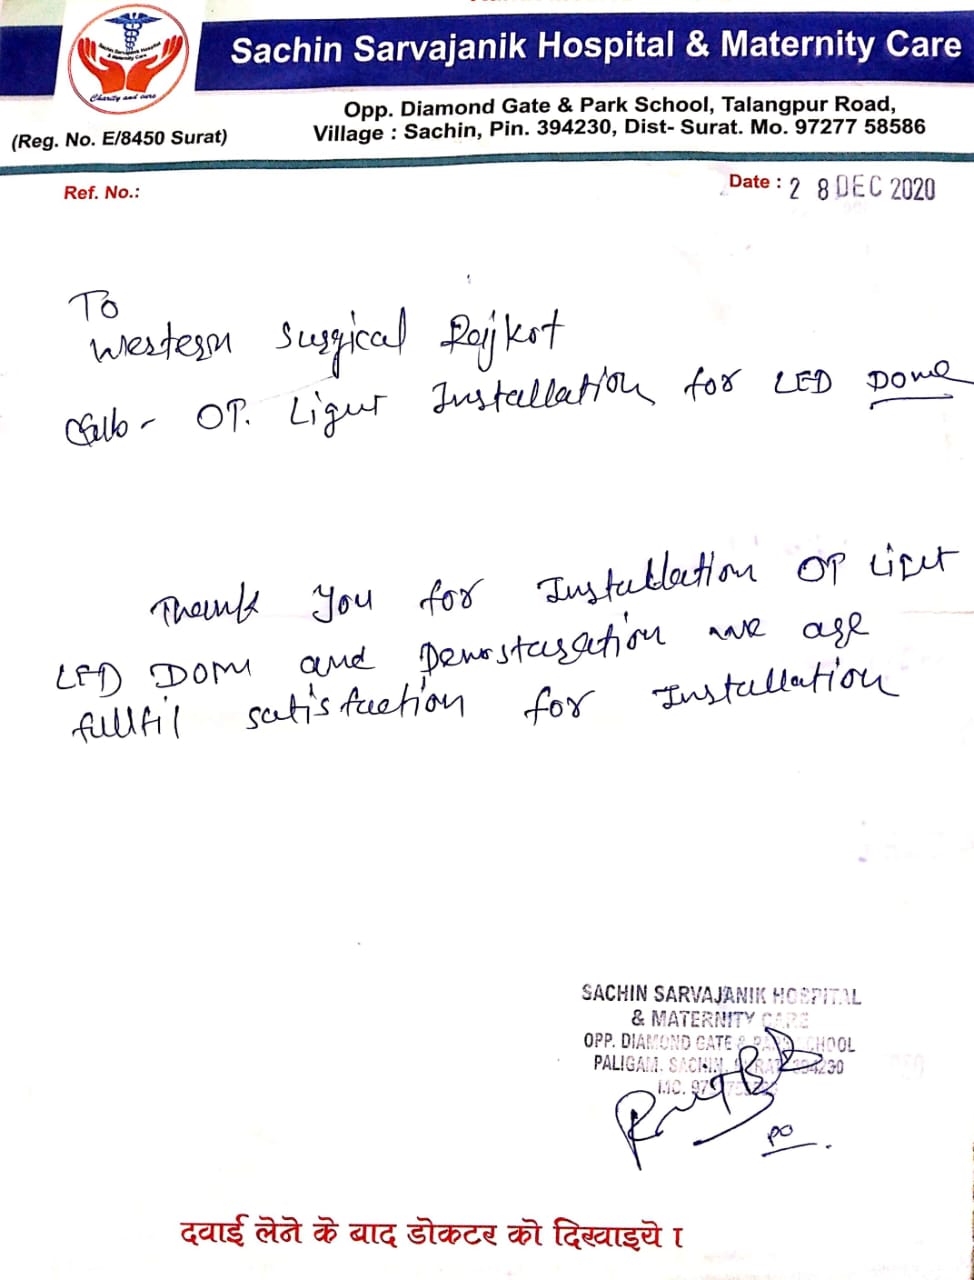 Sachin Sarvajanik Hospital & Maternity Care
Charity and care
Sachin Sarvajanik Hospital
& Maternity Care
Opp. Diamond Gate & Park School, Talangpur Road,
(Reg. No. E/8450 Surat)
Village : Sachin, Pin. 394230, Dist- Surat. Mo. 97277 58586
Ref. No.:
Date : 28 DEC 2020
To
Western Surgical Rajkot
Sub - OT. Light Installation for LED Dome
Thank you for Installation OT Light
LED DOM and Demostaration we are
fullfil satisfaction for Installation
SACHIN SARVAJANIK HOSPITAL
& MATERNITY CARE
OPP. DIAMOND GATE & PARK SCHOOL
PALIGAM, SACHIN, SURAT 394230
PO
दवाई लेने के बाद डोकटर को दिखाइये ।